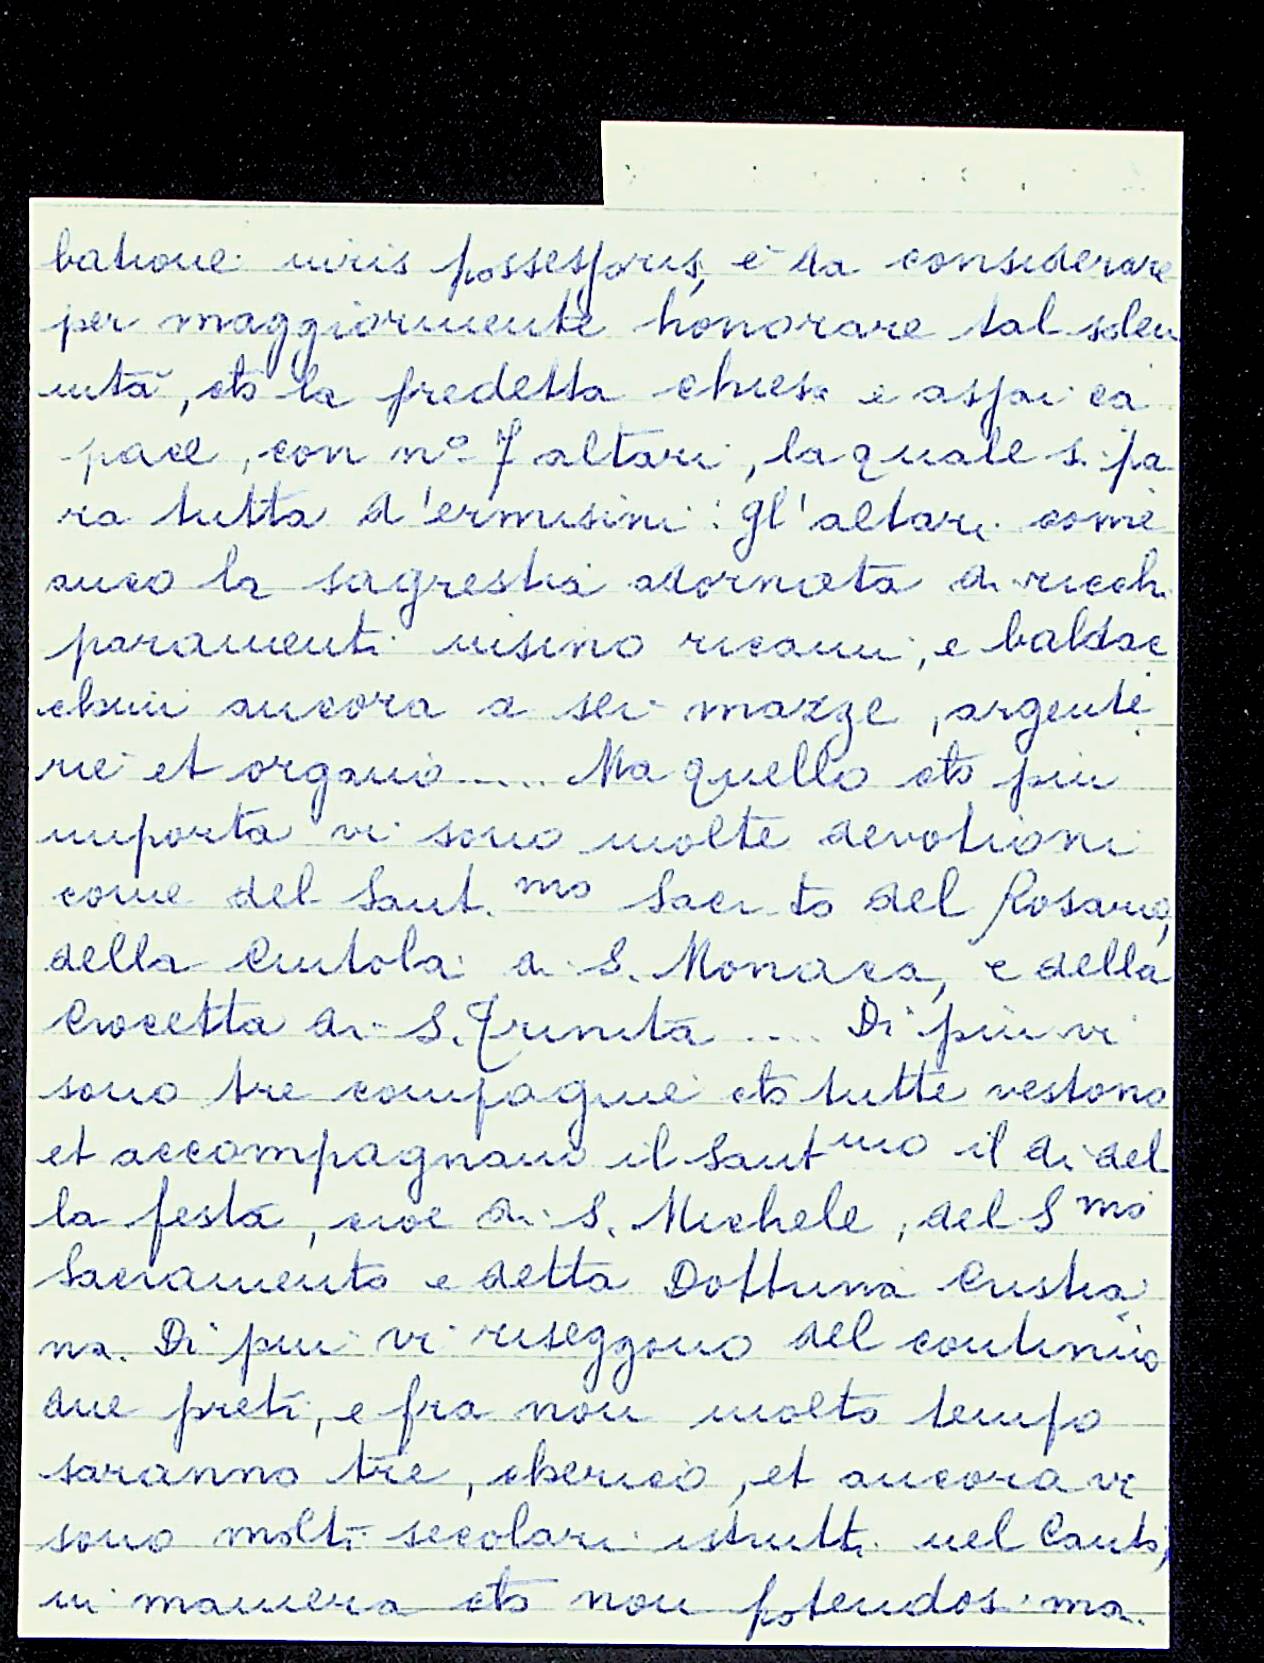 batione iuris possessoris, è da considerare
per maggiormente honorare tal solen
nità, che la predetta chiesa è assai ca
pace, con n.o 7 altari, la quale si pa
ra tutta d'ermisini: gl'altari come
anco la sagrestia adornata di ricchi
paramenti insino ricami, e baldac
chini ancora a sei mazze, argente
rie et organo..... Ma quello che più
importa vi sono molte devotioni
come del Sant.mo Sacr.to del Rosario,
della Cintola di S. Monaca, e della
Crocetta di S. Trinità .... Di più vi
sono tre compagnie che tutte vestono
et accompagnano il Santmo il dì del
la festa, cioè di S. Michele, del Smo
Sacramento e detta Dottrina Cristia
na. Di più vi riseggono del continuo
due preti, e fra non molto tempo
saranno tre, cherico, et ancora vi
sono molti secolari istrutti nel Canto,
in maniera che non potendosi ma.